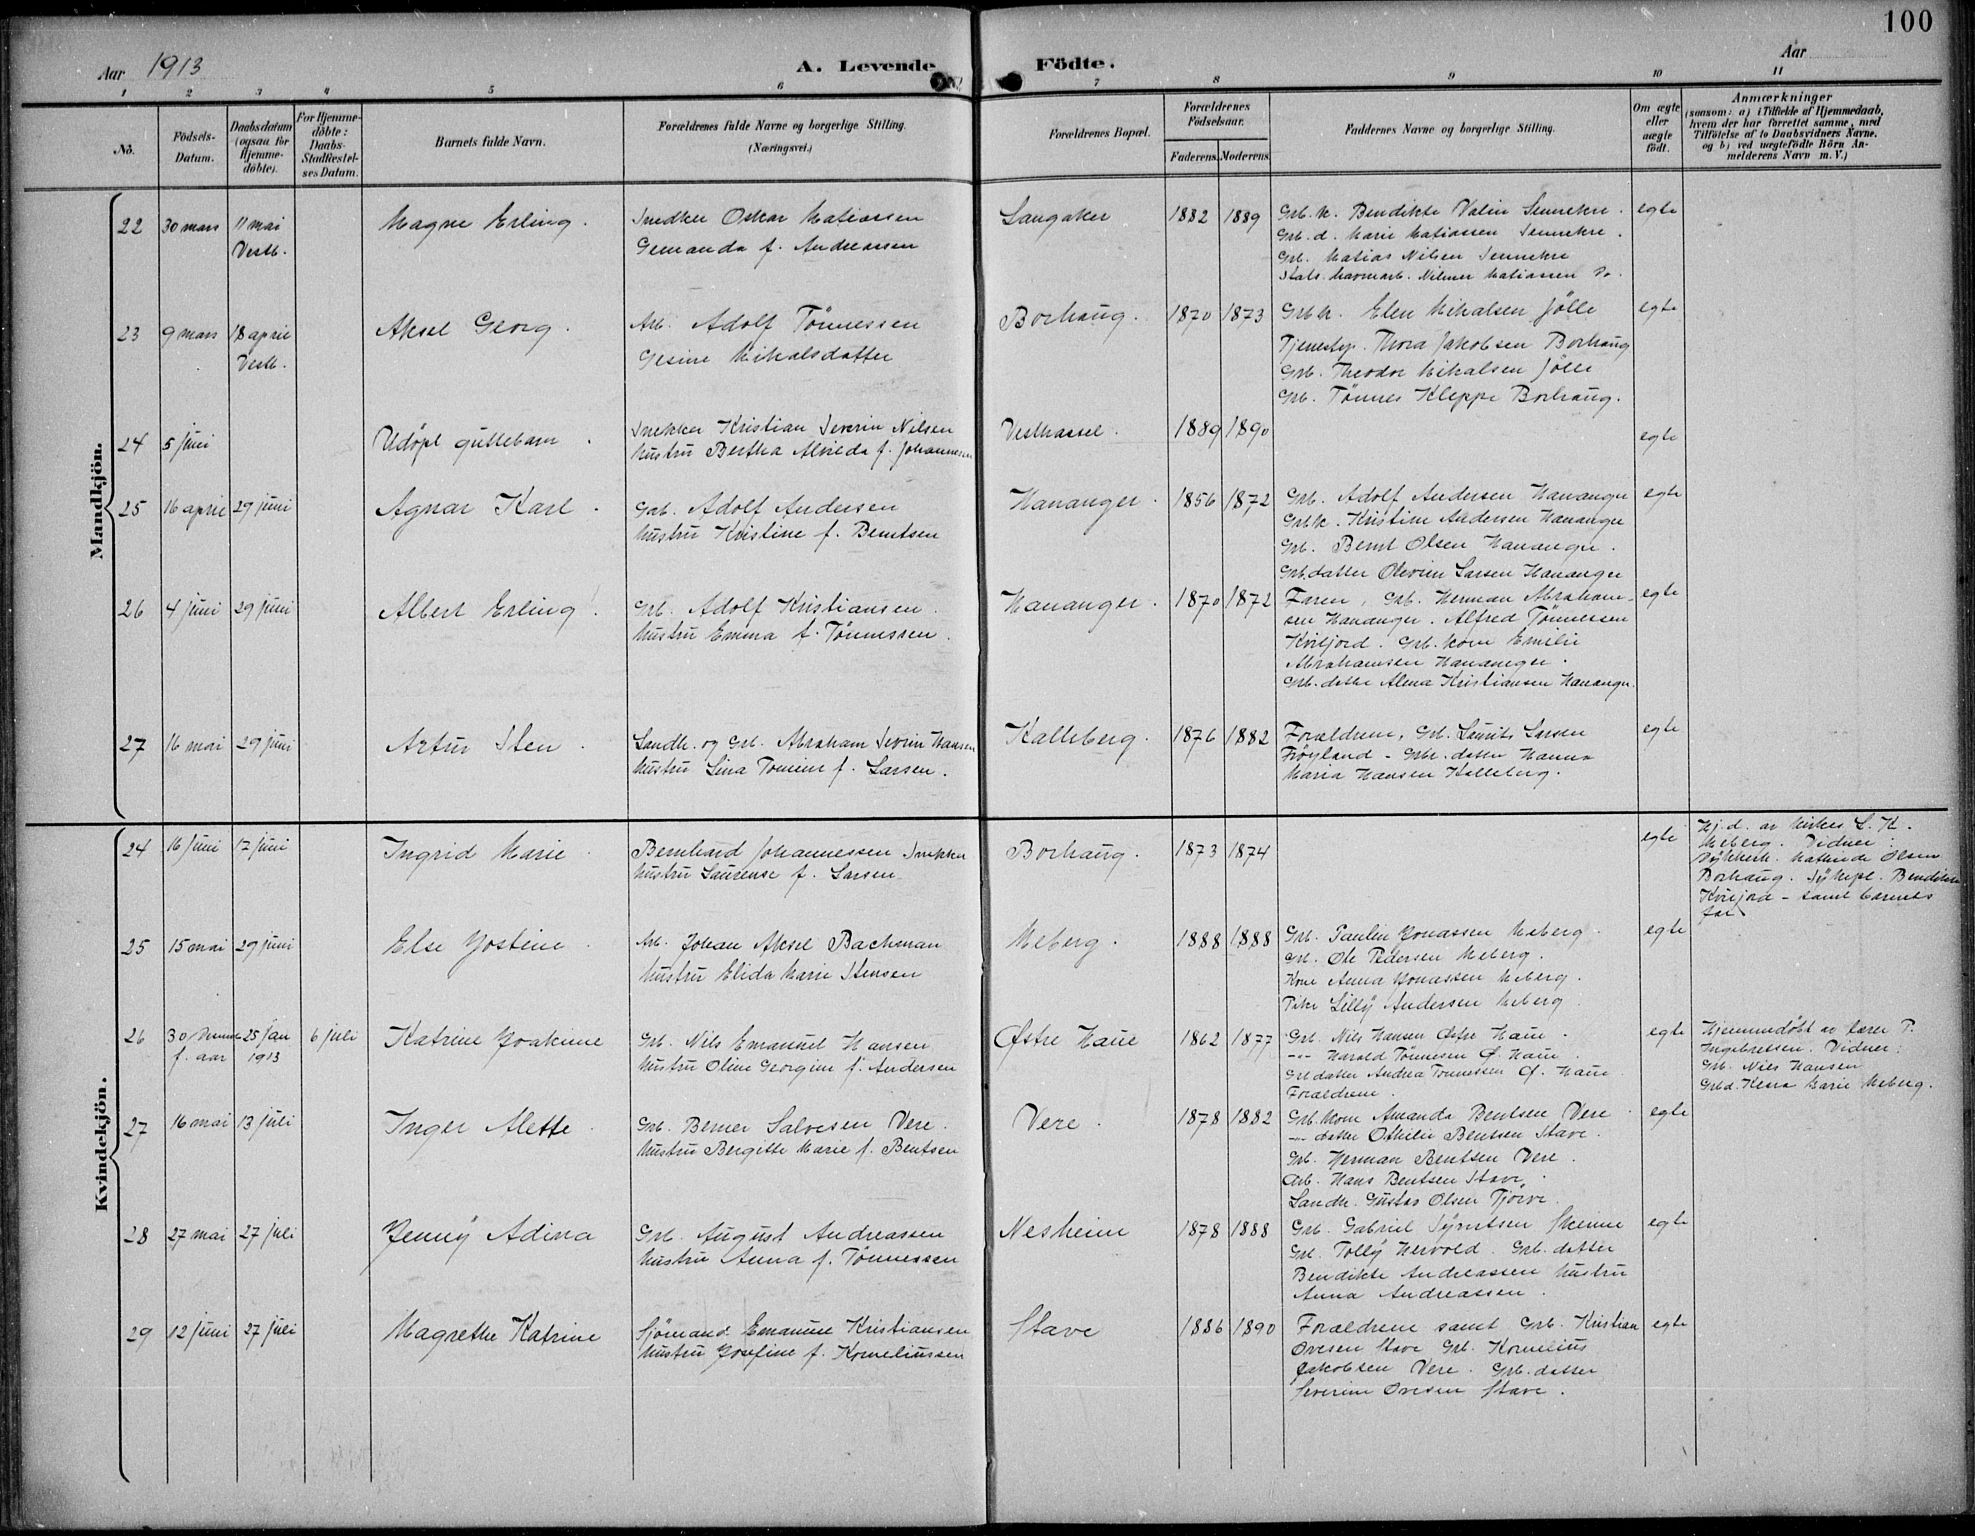 100
Aar 1913 A. Levende Födte. Aar
1 2 3 4 5 6 7 8 9 10 11
No. Födsels-Datum. Daabsdatum (ogsaa for Hjemme-döbte). For Hjemme-döbte: Daabs-Stadfæstel-ses Datum. Barnets fulde Navn. Forældrenes fulde Navne og borgerlige Stilling. (Næringsvei.) Forældrenes Bopæl. Forældrenes Födselsaar. Faderens. Moderens. Faddernes Navne og borgerlige Stilling. Om ægte eller uægte födt. Anmærkninger (saasom: a) i Tilfælde af Hjemmedaab, hvem der har forrettet samme, med Tilföielse af to Daabsvidners Navne, og b) ved uægtefödte Börn An-melderens Navn m. V.)
Mandkjön.
22 30 mars 11 mai Magne Erling. Snedker Oskar Matiassen Langaker 1882 1889 Grb. k. Bendikte Valin Sennekre. egte
Vestb. Gemanda f. Andreassen Grb. d. Marie Matiassen Sennekre.
Grb. Matias Nilsen Sennekre
Matiassen Do.
23 9 mars 18 april Aksel Georg. Arb. Adolf Tönnessen Borhaug. 1870 1873 Grbk. Elen Mikalsen Jölle egte
Vestb. Gesine Mikalsdatter Tjenestep. Thora Jakobsen Borhaug
Grb. Theodor Mikalsen Jölle
Grb. Tönnes Kleppe Borhaug.
24 5 juni Udöpt guttebarn. Snekker Kristian Severin Nilsen Vesthassel. 1889 1890 egte
Hustru Bertha Alvilda f. Johannesen
25 16 april 29 juni Agnar Karl. Grb. Adolf Andersen Hananger. 1856 1872 Grb. Adolf Andersen Hananger egte
Hustru Kristine f. Berntsen Grbk. Kristine Andersen Hananger
Grb. Bernt Olsen Hananger.
Grb.datter Larsen Hananger
26 4 juni 29 juni Albert Erling. Grb. Adolf Kristiansen. Hananger. 1870 1872 Faren, Grb. Herman Abraham- egte
Hustru Emma f. Tönnessen. sen Hananger. Alfred Tönnessen
Kviljord. Grb. kone Emilie
Abrahamsen Hananger.
Grb. datter Alma Kristiansen Hananger.
27 16 mai 29 juni Artur Sten. Landh. og Grb. Abraham Severin Hansen Kalleberg. 1876 1882 Forældrene, Grb. Laurits Larsen egte
Hustru Lina Tomine f. Larsen. Fröyland - Grbr. datter Hanna
Maria Hansen Kalleberg.
Kvindekjön.
24 16 juni 17 juni Ingrid Marie. Bernhard Johannessen Snekker Borhaug. 1873 1874 egte Hj.d. av L. K.
Hustru Laurense f. Larsen Meberg. Vidner:
Mathilde Olsen
Borhaug. Bendikte
Kviljord - samt barnets
far
25 15 mai 29 juni Else Jostine. Arb. Johan Aksel Bachman Meberg. 1888 1888 Grb. Paulin Jonassen Meberg. egte
Hustru Elida Marie Stensen Grb. Ole Pedersen Meberg.
Kone Anna Jonassen Meberg.
Pike Lilly Andersen Meberg
26 30/ f. aar 25 jan 1913 6 juli Katrine Joakime Grb. Nils Emanuel Hansen Østre Haue 1862 1877 Grb. Nils Hansen Østre Haue. egte Hjemmedöbt av lærer P.
Hustru Oline Georgine f. Andersen -"- Harald Tönnesen Ø. Haue. Ingebretsen. Vidner:
Grb datter Andrea Tönnessen Ø. Haue. Grb. Nils Hansen
Forældrene. Grbd. Marie Meberg.
27 16 mai 13 juli Inger Alette. Grb. Berner Salvesen Vere. Vere. 1878 1882 Grb. kone Amanda Bentsen Vere. egte
Hustru Bergitte Marie f. Bentsen -"- datter Othilie Bentsen Stave.
Grb. Herman Bentsen Vere.
Arb. Hans Bentsen Stave.
Landh. Gustav Olsen Tjörve.
28 27 mai 27 juli Jenny Adina Grb. August Andreassen Nesheim 1878 1888 Grb. Gabriel Syvertsen Skeime egte
Hustru Anna f. Tönnessen Grb. Tolly Hervold. Grb. datter
Bendikte Andreassen Hustru
Anna Andreassen.
29 12 juni 27 juli Magrethe Katrine Sjömand Emanuel Kristiansen Stave 1886 1890 Forældrene samt Grb. Kristian egte
Hustru Josefine f. Korneliussen Ovesen Stave Grb. Kornelius
Jakobsen Vere. Grb. datter
Severine Ovesen Stave.